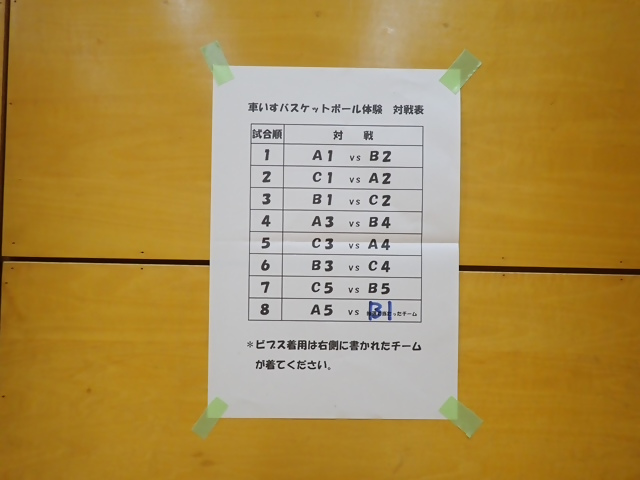 車いすバスケットボール体験 対戦表
試合順 対 戦
1 A1 vs B2
2 C1 vs A2
3 B1 vs C2
4 A3 vs B4
5 C3 vs A4
6 B3 vs C4
7 C5 vs B5
8 A5 vs B1 ったチーム
＊ビブス着用は右側に書かれたチーム
が着てください。